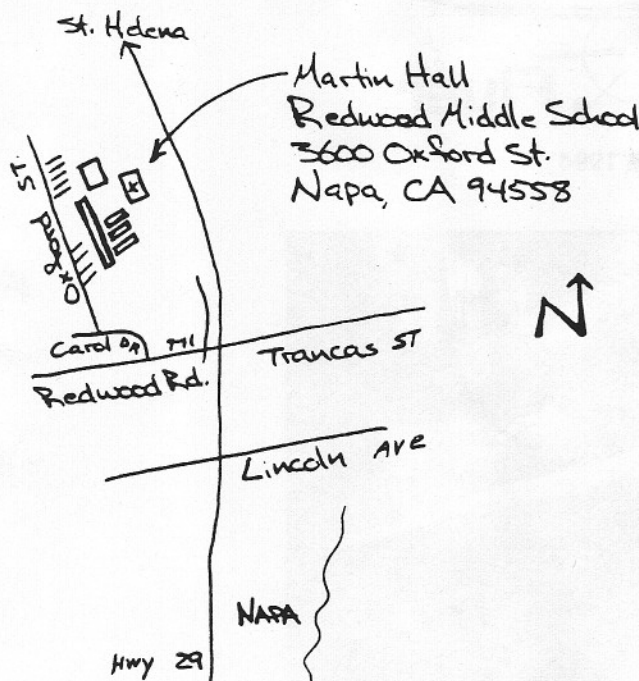 St. Helena
Martin Hall
Redwood Middle School
3600 Oxford St.
Napa, CA 94558
Oxford ST.
N
Carol DR
Trancas ST
Redwood Rd.
Lincoln Ave
NAPA
Hwy 29